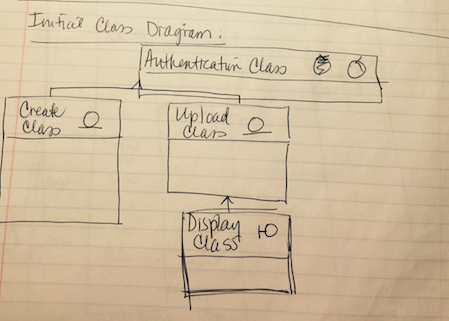 Initial Class Diagram.
Authentication Class
Create
Class
Upload
Class
Display
Class